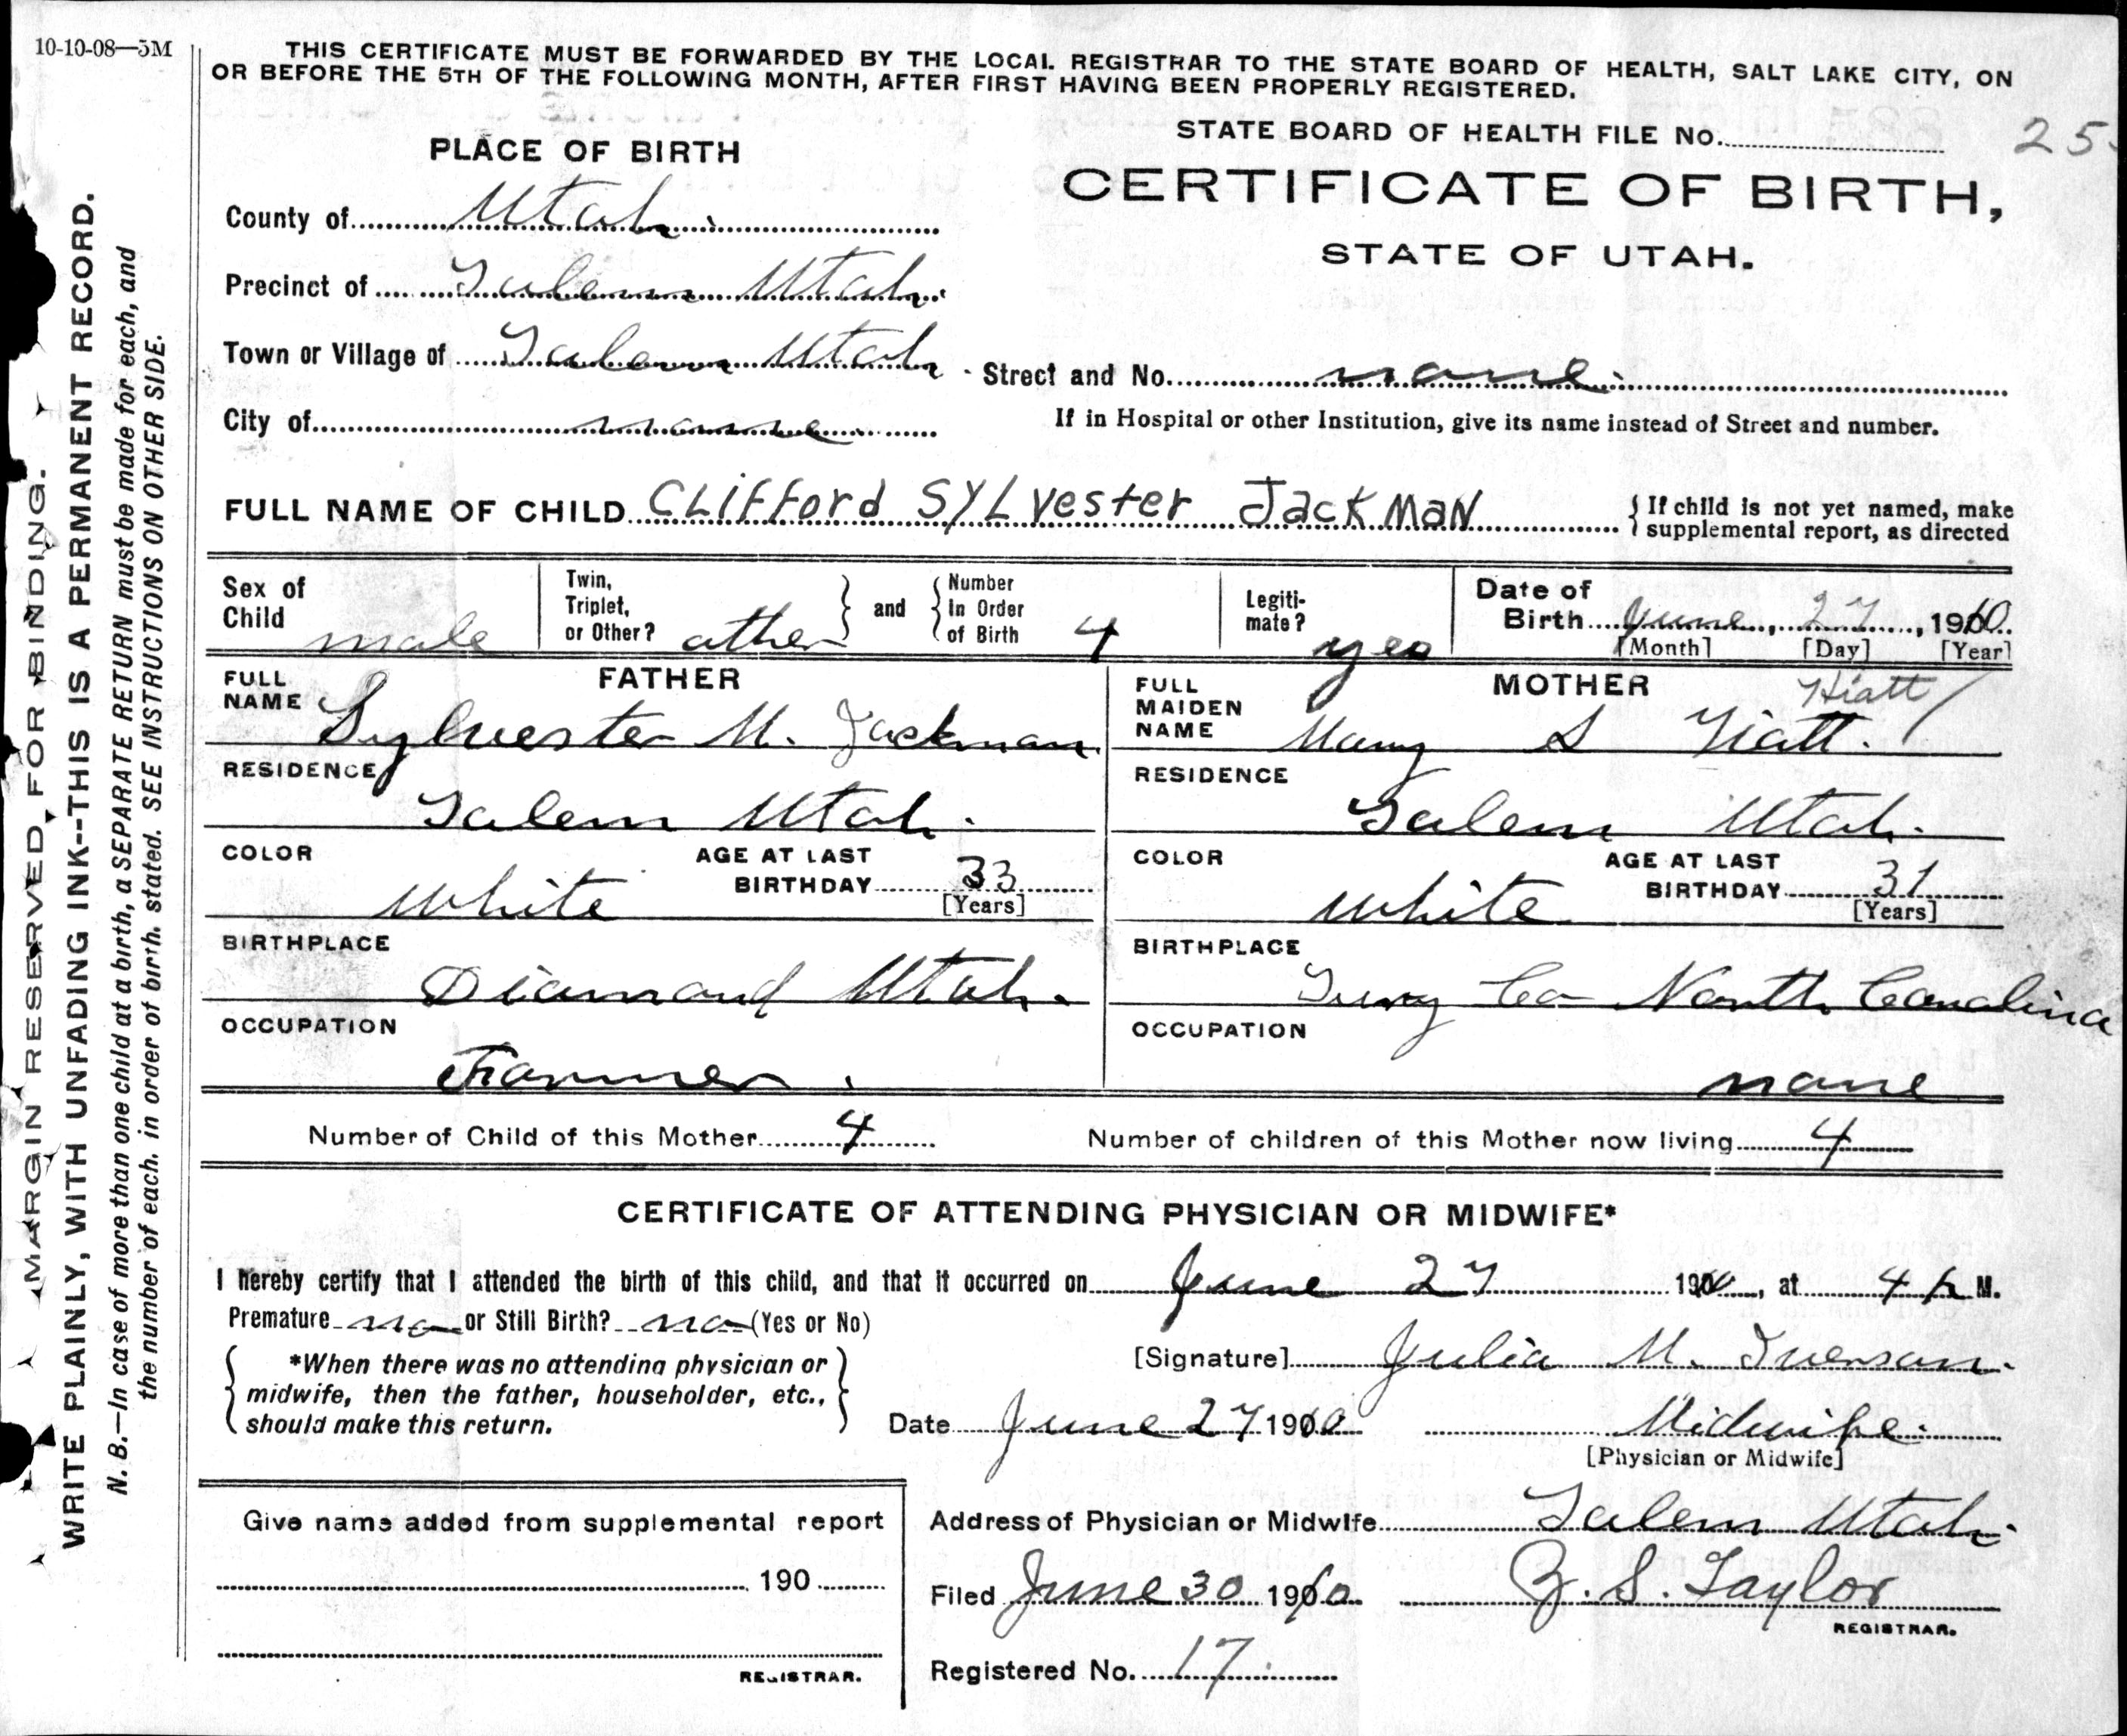 10-10-08—5M
THIS CERTIFICATE MUST BE FORWARDED BY THE LOCAL REGISTRAR TO THE STATE BOARD OF HEALTH, SALT LAKE CITY, ON
OR BEFORE THE 5TH OF THE FOLLOWING MONTH, AFTER FIRST HAVING BEEN PROPERLY REGISTERED.
STATE BOARD OF HEALTH FILE No. 25
PLACE OF BIRTH
CERTIFICATE OF BIRTH,
STATE OF UTAH.
County of Utah.
Precinct of Salem Utah.
Town or Village of Salem Utah
Street and No. none.
City of none.
If in Hospital or other Institution, give its name instead of Street and number.
FULL NAME OF CHILD Clifford Sylvester Jackman
If child is not yet named, make
supplemental report, as directed
Sex of Child male
Twin, Triplet, or Other? other and Number In Order of Birth 4
Legiti-mate? yes
Date of Birth June, 27, 1910.
[Month] [Day] [Year]
FATHER
FULL NAME Sylvester M. Jackman
RESIDENCE
Salem Utah.
COLOR white
AGE AT LAST BIRTHDAY 33
[Years]
BIRTHPLACE
Diamond Utah.
OCCUPATION
Farmer.
MOTHER
Hiatt
FULL MAIDEN NAME Mary S Hiatt.
RESIDENCE
Salem Utah.
COLOR white
AGE AT LAST BIRTHDAY 31
[Years]
BIRTHPLACE
Surry Co North Carolina
OCCUPATION
none
Number of Child of this Mother 4
Number of children of this Mother now living 4
CERTIFICATE OF ATTENDING PHYSICIAN OR MIDWIFE*
I hereby certify that I attended the birth of this child, and that it occurred on June 27 1910, at 4 P. M.
Premature no or Still Birth? no (Yes or No)
*When there was no attending physician or
midwife, then the father, householder, etc.,
should make this return.
[Signature] Julia M. Iverson.
Date June 27 1910
Midwife.
[Physician or Midwife]
Give name added from supplemental report
190
REGISTRAR.
Address of Physician or Midwife Salem Utah.
Filed June 30 1910
Z. S. Taylor
REGISTRAR.
Registered No. 17.
MARGIN RESERVED FOR BINDING.
WRITE PLAINLY, WITH UNFADING INK--THIS IS A PERMANENT RECORD.
N. B.—In case of more than one child at a birth, a SEPARATE RETURN must be made for each, and
the number of each. in order of birth. stated. SEE INSTRUCTIONS ON OTHER SIDE.